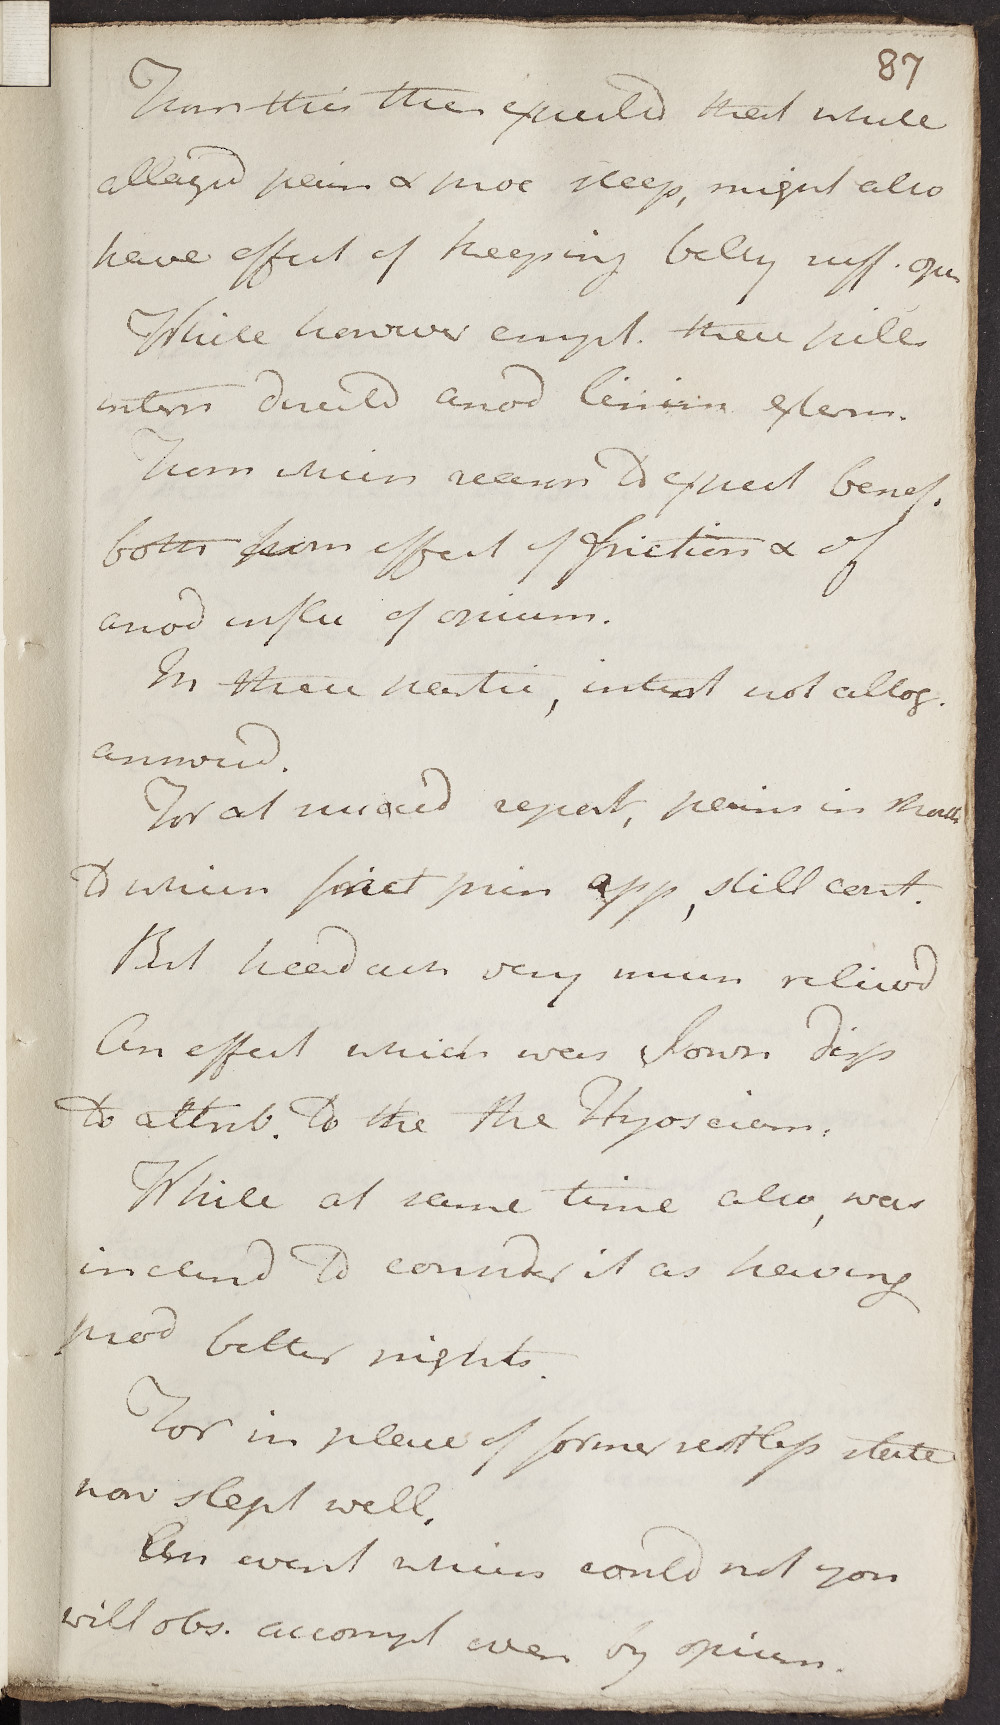 87
From this then expected that while
allayed pain & proc sleep, might also
have effect of keeping belly suff. open
While however empl. these pills
intern directed anod linim extern.
From which reason to expect benef.
both from effect of friction & of
anod influ of opium.
In these partic, intent not altog.
answered.
For at succeed report, pains in should
to which frict prin app, still cont.
But headach very much relieved
An effect which was down disp
to attrib. to the the Hyosciam.
While at same time also, was
inclind to consider it as having
prod better nights.
For in place of former restless state
now slept well.
An event which could not you
will obs. accompl even by opium.